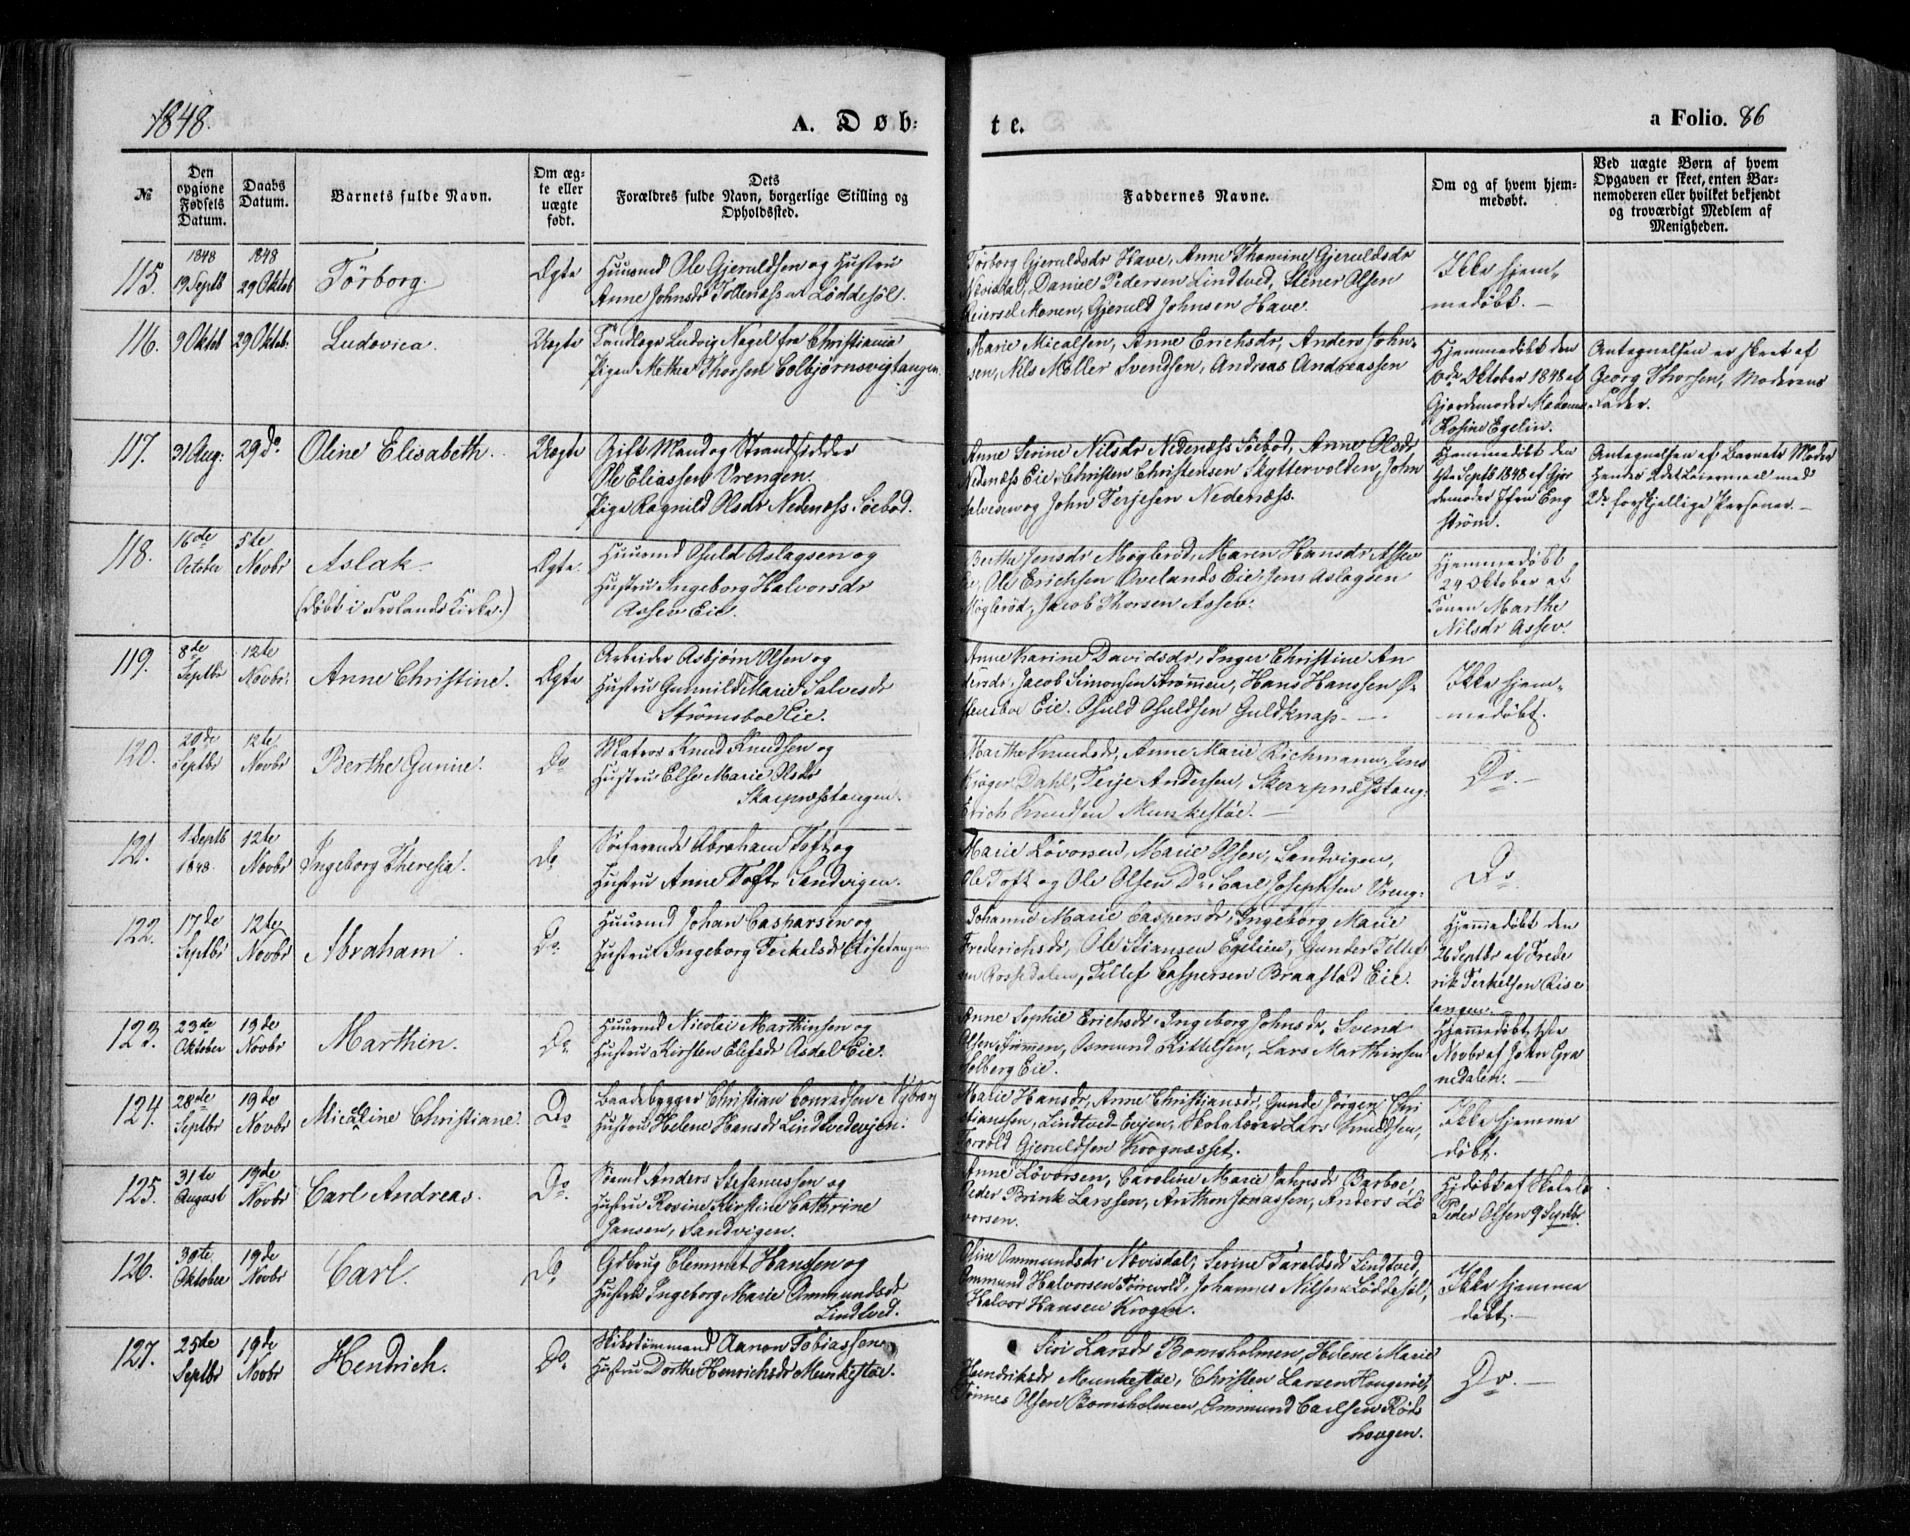 1848.
A. Døb=
te.
a Folio. 86
№
Den opgivne Fødsels Datum.
Daabs Datum.
Barnets fulde Navn.
Om ægte eller uægte født.
Dets Forældres fulde Navn, borgerlige Stilling og Opholdssted.
Faddernes Navne.
Om og af hvem hjemmedøbt.
Ved uægte Børn af hvem Opgaven er skeet, enten Barnemoderen eller hvilket bekjendt og troværdigt Medlem af Menigheden.
115.
1848
19 Septb
1848
29 Oktob
Törborg.
Ægte
Huusmd Ole Gjeruldsen og Hustru
Anne Johnsdr Løddesøl.
Törborg Gjeruldsdr Have, Anne Thomine Gjeruldsdr
Daniel Pedersen Lindtved, Stener Olsen
Monen, Gjeruld Johnsen Have.
Ikke hjem-
medøbt.
116.
9 Oktob
29 Oktob.
Ludovica.
Uægte
Tandlæge Ludvig Nagel fra Christiania
Pigen Mathea Thorsen Colbjørnsvigtangen
Marie Micalsen, Anne Erichsdr, Anders John-
sen, Nils Møller Svendsen, Andreas Andreassen
Hjemmedøbt den
10de Oktober 1848 af
Gjordemoder Madame
Rosine Egelin.
Antagnelsen er skeet af
Georg Thorsen, Moderens
Fader.
117.
31 Aug.
29 Do
Oline Elisabeth.
Uægte
Gift Mand og Strandsidder
Ole Eliassen Vrengen.
Pige Ragnild Olsdr Nedenæss Söebod.
Anne Serine Nilsdr Nedenæss Söebod, Anne Olsdr
Nedenæss Eie, Christen Christensen Skyttervolden, John
Salvesen og John Terjesen Nedenæss.
Hjemmedøbt den
Septb 1848 af Gjor
demoder Eng
ström.
Antagnelsen af Barnets Moder
Hendes 2det Leiermaal med
2de forskjellige Personer.
118.
16de
October
5te
Novbr
Aslak
(døbt i Frolands Kirke.)
Ægte.
Huusmd Osuld Aslagsen og
Hustru Ingeborg Halvorsdr
Assev Eie.
Berthe Jensdr Møglerød, Maren Hansdr Assev
Eie, Ole Erichsen Ovelands Eie, Jens Aslagsen
Møglerød, Jacob Thorsen Assev.
Hjemmedøbt
24 Oktober af
Konen Marthe
Nilsdr Assev.
119.
8de
Septbr
12te
Novbr.
Anne Christine.
Ægte
Arbeider Asbjörn Olsen og
Hustru Gunnild Marie Salvesdr
Strömsboe Eie.
Anne Karine Davidsdr, Inger Christine An
dersdr, Jacob Simonsen Strömmen, Hans Hanssen Ø-
stensboe Eie. Osuld Osuldsen Guldknap.
Ikke hjem-
medøbt.
120.
20de
Septbr
12te
Novbr
Berthe Gunine.
Do
Matros Knud Knudsen og
Hustru Else Marie Olsdr
Skarpnæsstangen.
Marthe Knudsdr, Anne Marie Richmann, Jens
Krøger Dahl, Terje Andersen, Skarpnæsstang.
Erich Knudsen Munkestøe.
Do.
121.
1 Septb
1848.
12te
Novbr
Ingeborg Theresia.
Do
Söefarende Abraham Toft og
Hustru Anne Toft Sandvigen.
Marie Lövorsen, Marie Olsen, Sandvigen,
Ole Toft og Ole Olsen Do. Carl Josephsen Vreng-
Do.
122.
17de
Septbr
12te
Novbr
Abraham
Do.
Huusmd Johan Casparsen og
Hustru Ingeborg Terkelsdr Risetangen
Johanne Marie Caspersdr, Ingeborg Marie
Frederichsdr, Ole Stiansen Egelien, Gunder Tellef
sen Rossedalen, Tellef Caspersen Braastad Eie.
Hjemedøbt den
26 Septbr af Frede
rik Terkelsen Rise
tangen.
123.
23de
Oktober
19de
Novbr
Marthin.
Do.
Huusmd Nicolai Marthinsen og
Hustru Kirsten Elefsdr Asdal Eie.
Anne Sophie Erichsdr, Ingeborg Johnsdr, Svend
Olsen Lömmen, Osmund Kittelsen, Lars Marthinsen
Solberg Eie.
Hjemedøbt
Novbr af John Gra
nedalen.
124.
28de
Septbr
19de
Novbr
Micaeline Christiane.
Do
Baadebygger Christian Conradsen Nyborg
Hustru Helene Hansdr Lindtvedevjen.
Marie Hansdr, Anne Christjansdr, Gunde Jørgen Chri
stianssen, Lindtved-Evjen, Skolelærer Lars Knudsen,
Torvold Gjeruldsen Krognæsset.
Ikke hjemme
døbt.
125.
31te
August
19de
Novbr
Carl Andreas.
Do.
Söemd Anders Stefanussen og
Hustru Rosine Kirstine Cathrine
Jansen, Sandvigen.
Anne Lövorsen, Caroline Marie Jahnsdr Barboe,
Peder Brink Larssen, Anthon Jonassen, Anders Lö
vorsen.
Hjdøbt af Skolel
Peder Olsen 9 Septbr.
126.
30te
Oktober
19de
Novbr
Carl.
Do
Gdbrug Clemmet Hansen og
Hustru Ingeborg Marie Ommundsdr
Lindtved.
Oline Ommundsdr Novisdal, Serine Taraldsdr Lindtved,
Ommund Halvorsen Törevold, Johannes Nilsen Løddesøl,
Halvor Hansen Krogen.
Ikke hjemme
døbt.
127.
25de
Septbr
19de
Novbr
Hendrich.
Do.
Skibstømmermand Aanon Tobiassen
Hustru Dorthe Henrichsdr Munkestøe.
Siri Larsdr Bomsholmen, Helene Marie
Hendriksdr Munkestøe, Christen Larsen Hougerød,
Tönnes Olsen Bomsholmen, Ommund Carlsen Röds
haugen.
Do.